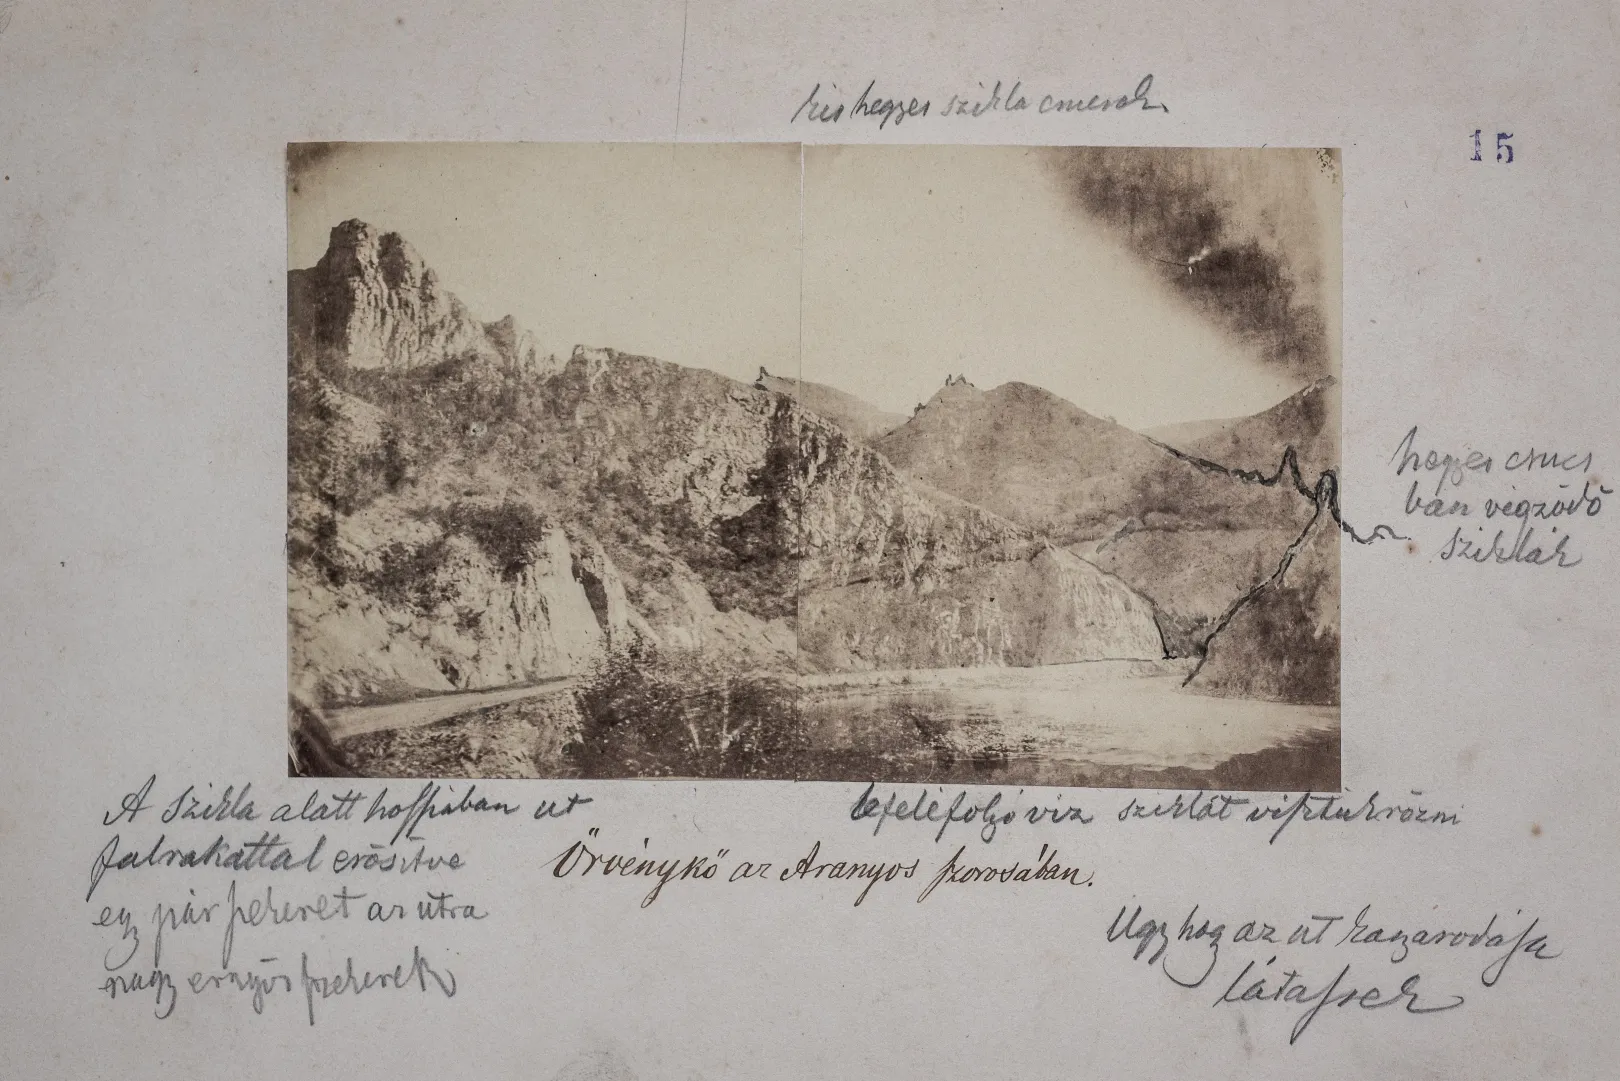 kis hegyes szikla
15
hegyes csucs
ban végződő
sziklák
A szikla alatt hosszában ut
falrakattal erősitve
egy pár szekeret az útra
nagy ernyős szekerek
lefeléfolyó viz sziklát visztükrözni
Örvénykő az Aranyos szorosában.
Ugy hog az ut kanyarodása
látassek